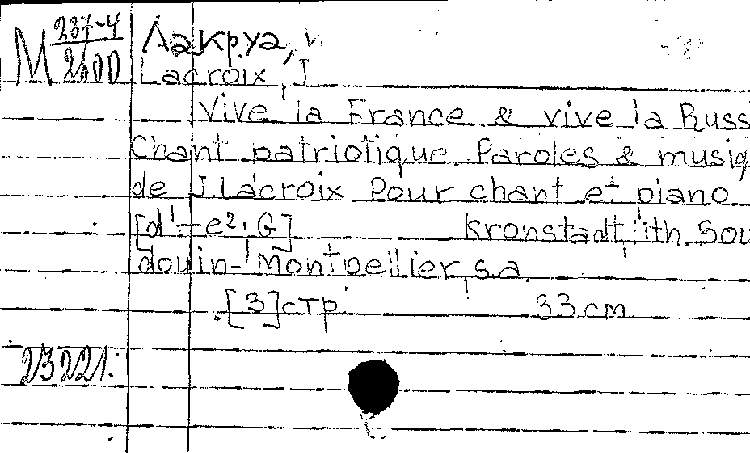 М 237-4/2600
Лакруа,
Lacroix, J
Vive la France & vive la Russ
Chant patriotique. Paroles & musiq
de J. Lacroix Pour chant et piano
[d¹–e², G] Kronstadt, lith. Sou
douin-Montpellier, s.a.
[3] стр. 33 cm
23221.